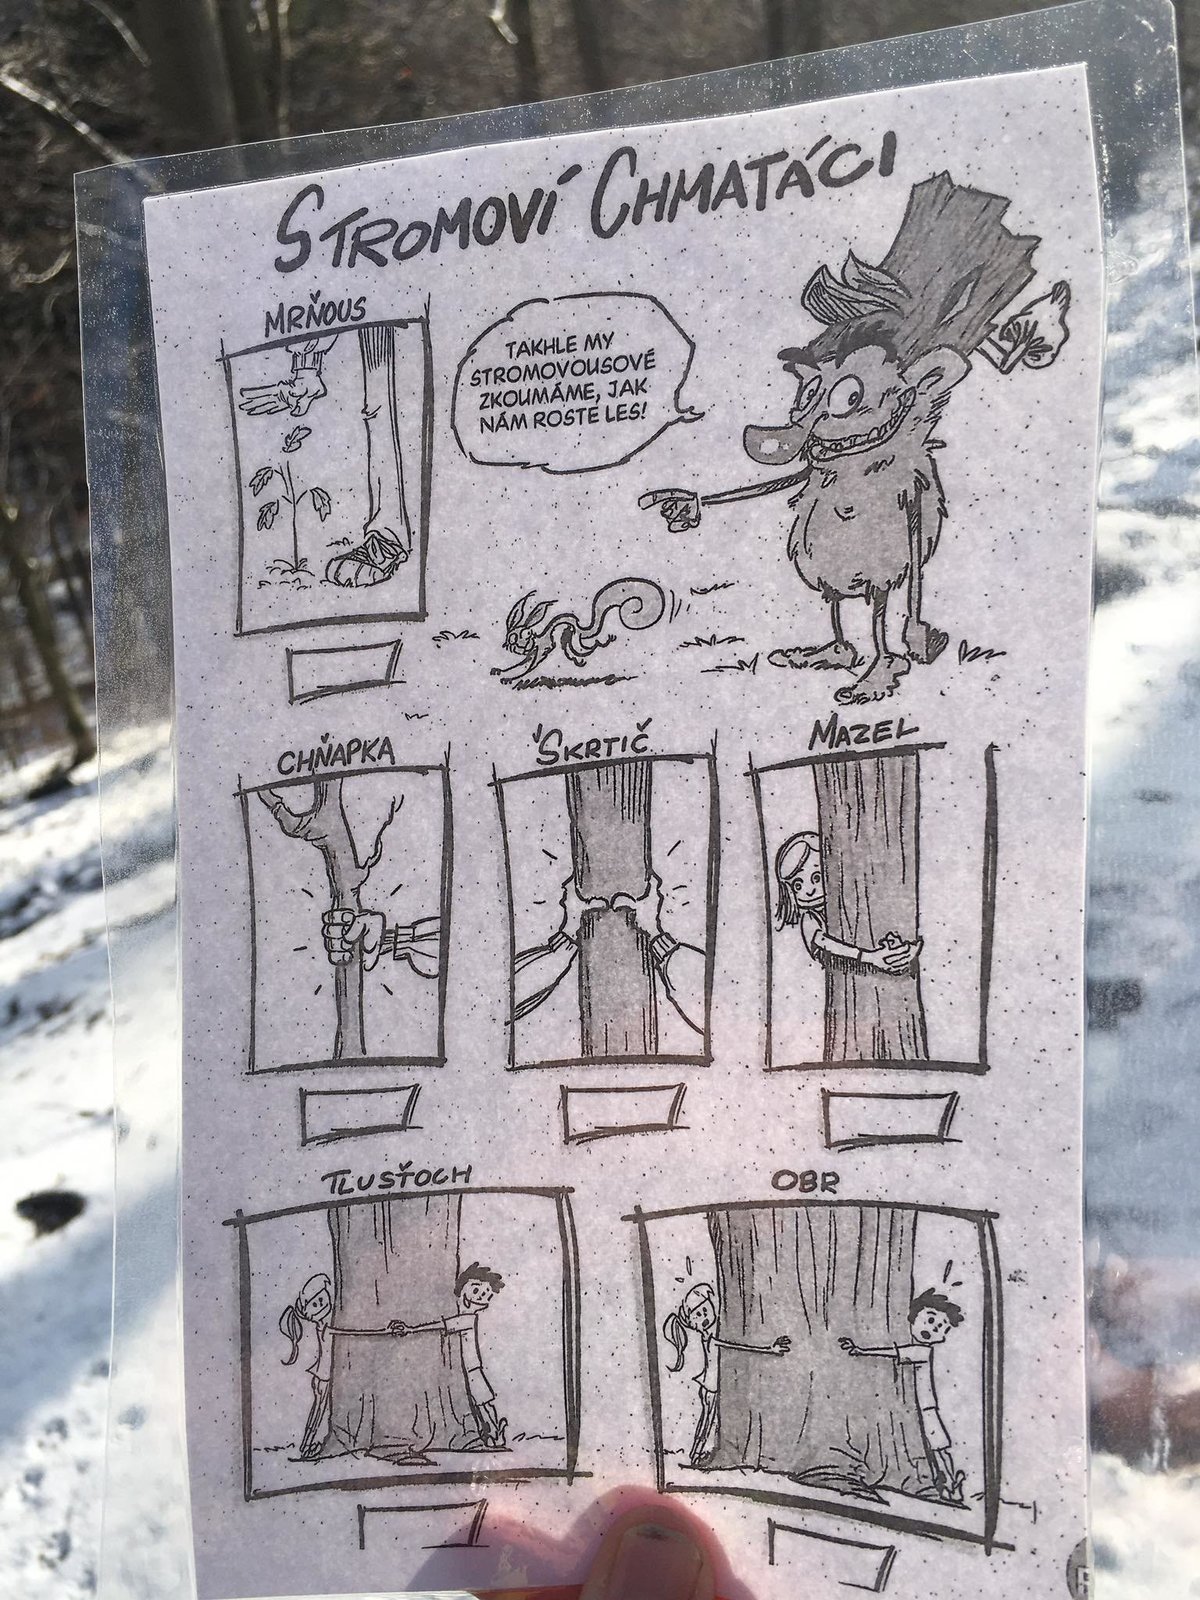 STROMOVÍ CHMATÁCI
MRŇOUS
TAKHLE MY
STROMOVOUSOVÉ
ZKOUMÁME, JAK
NÁM ROSTE LES!
CHŇAPKA
ŠKRTIČ
MAZEL
TLUSŤOCH
OBR